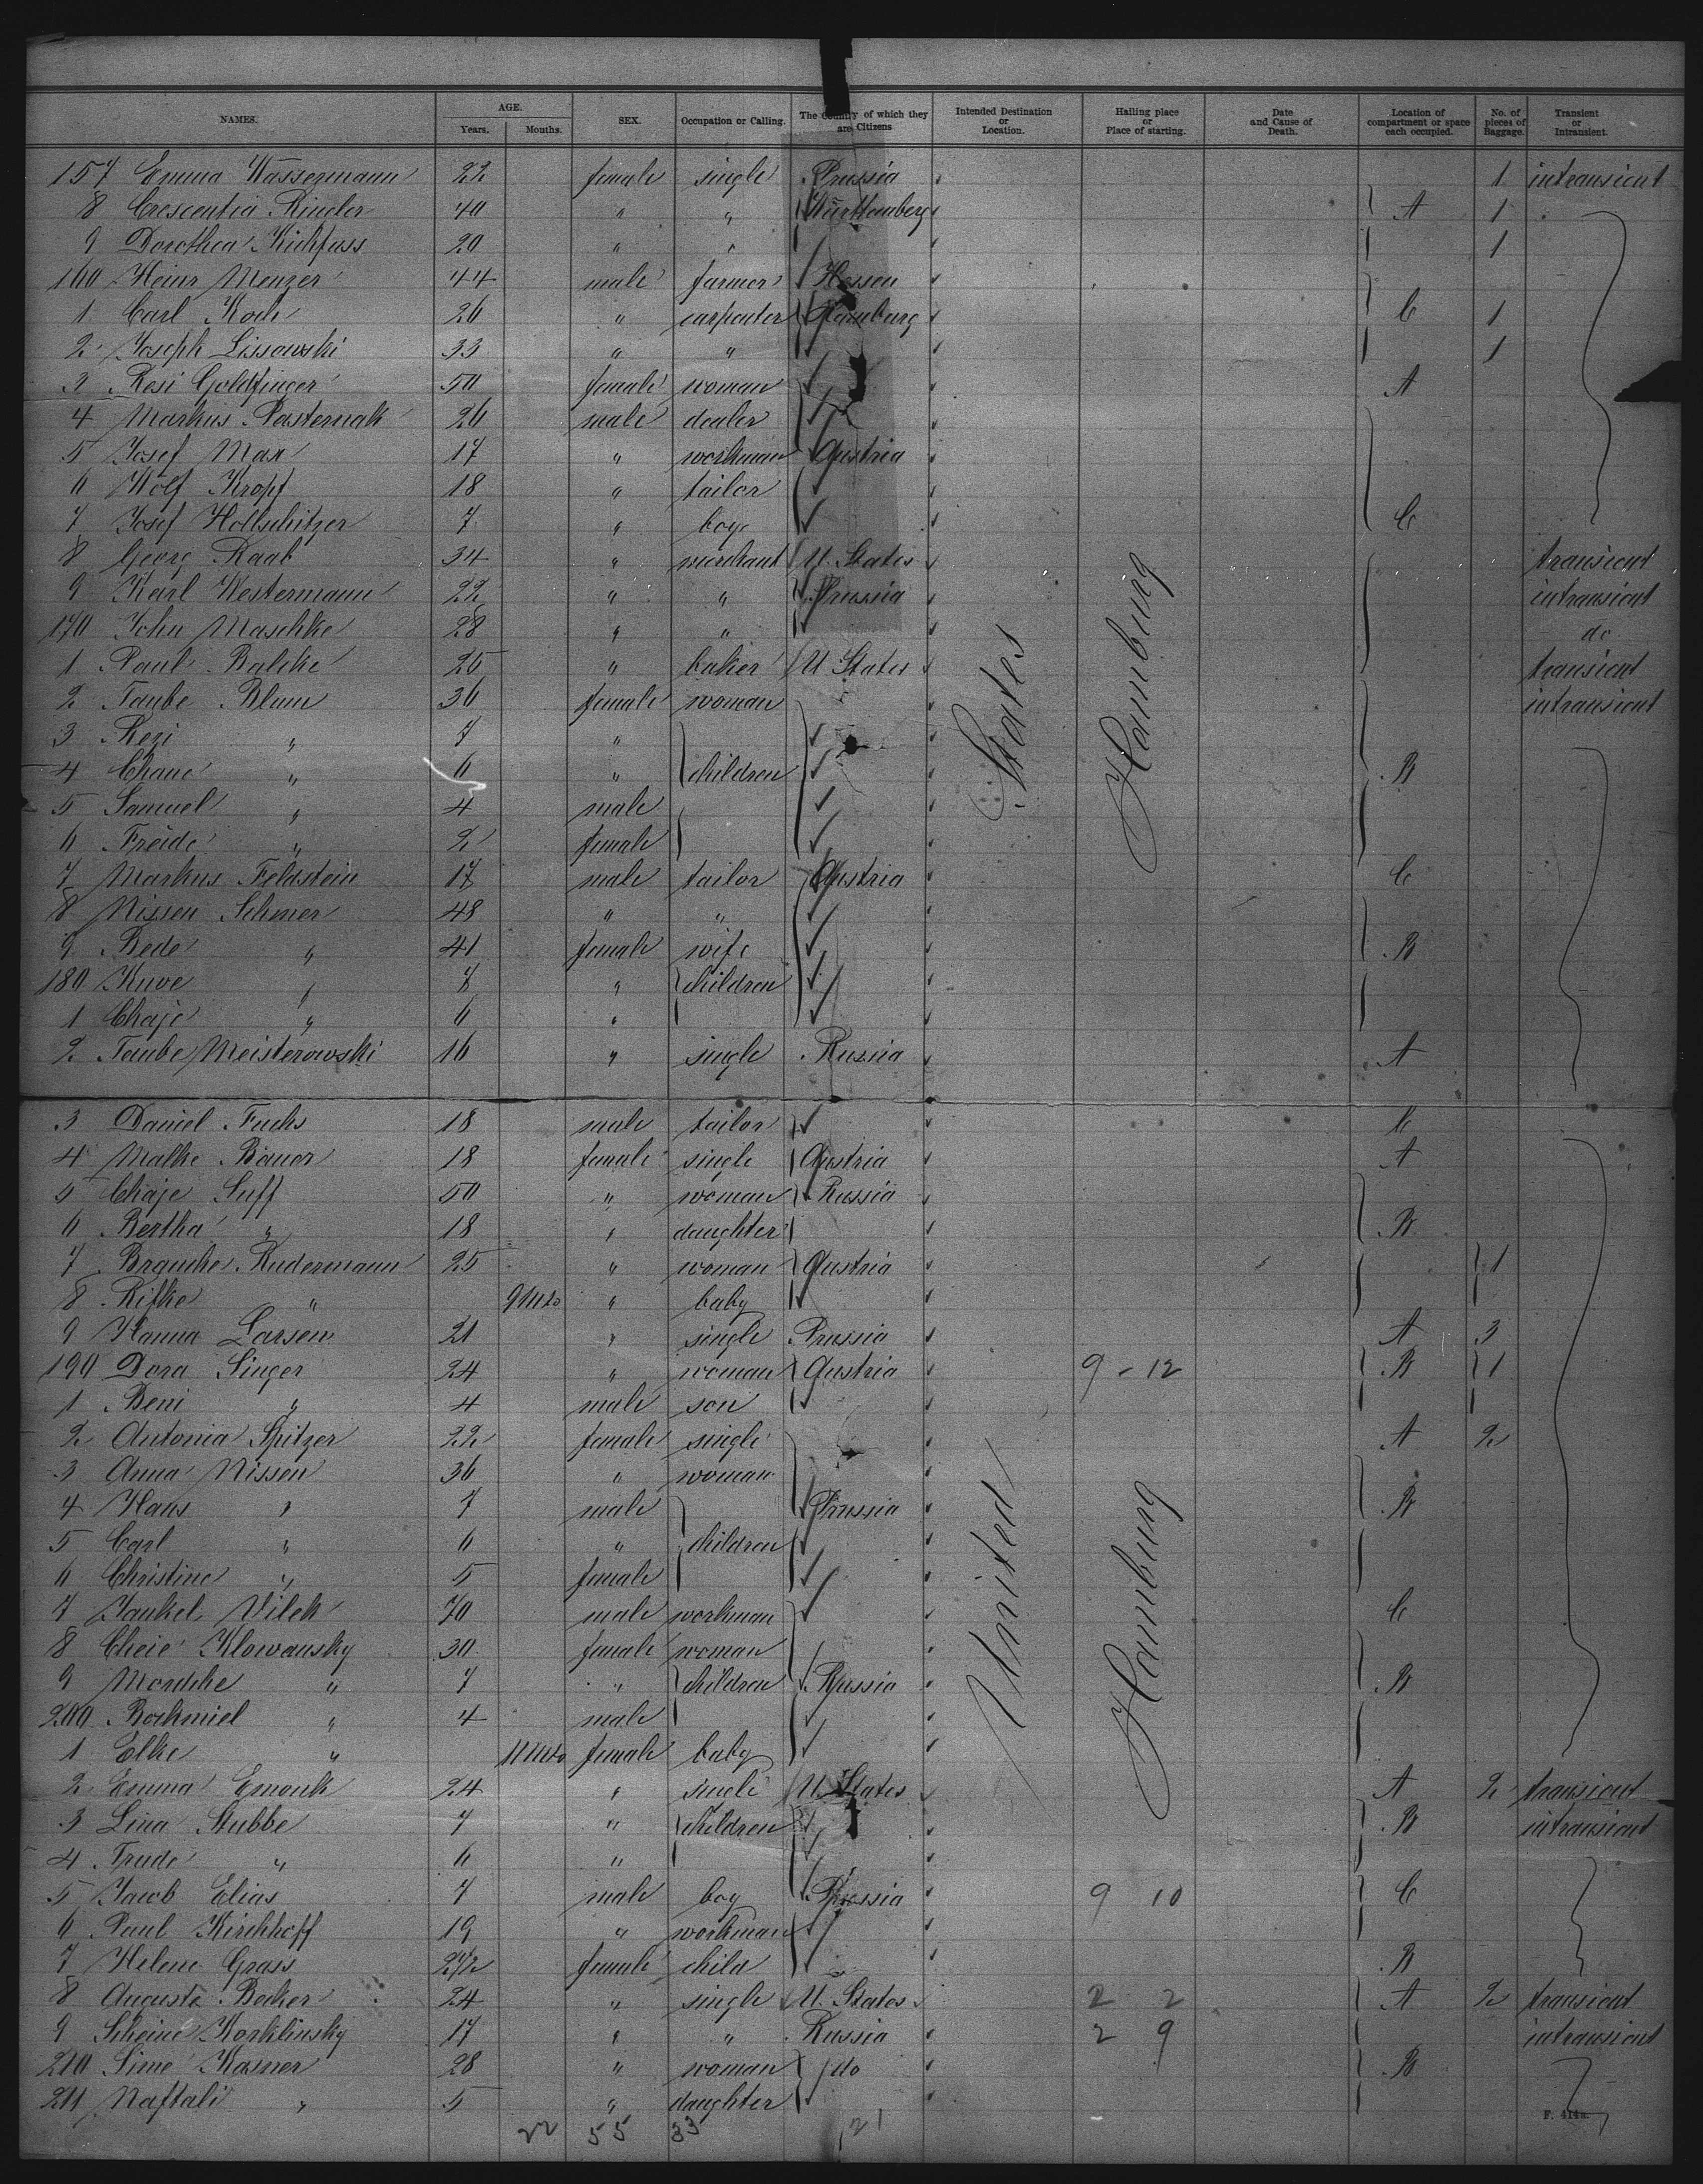 NAMES. AGE. Years. Months. SEX. Occupation or Calling. The Country of which they are Citizens Intended Destination or Location. Hailing place or Place of starting. Date and Cause of Death. Location of compartment or space each occupied. No. of pieces of Baggage. Transient or Intransient.
157 Emma Wassermann 22 female single Prussia 1 intransient
8 Crescentia Rindler 40 " " Württemberg A 1
9 Dorothea Kickfuss 20 " " 1
160 Heinr Menzer 44 male farmer Hessen
1 Carl Koch 26 " carpenter Hamburg C 1
2 Joseph Lissowski 33 " " 1
3 Resi Goldfinger 50 female woman A
4 Markus Pasternak 26 male dealer
5 Josef Max 17 " workman Austria
6 Wolf Kropf 18 " tailor
7 Josef Hollschitzer 7 " boy C
8 Georg Raab 34 " merchant U. States transient
9 Karl Westermann 22 " " Prussia intransient
170 John Maschke 28 " " do
1 Paul Balcke 25 " baker U. States transient
2 Taube Blum 36 female woman intransient
3 Resi " 7 "
4 Chane " 6 " children B
5 Samuel " 4 male
6 Freide " 2 female
7 Markus Feldstein 17 male tailor Austria C
8 Nissen Schmer 48 " "
9 Bede " 41 female wife B
180 Kuve " 7 " children
1 Chaje " 6 "
2 Taube Meisterowski 16 " single Russia A
States Hamburg
3 Daniel Fuchs 18 male tailor C
4 Malke Bauer 18 female single Austria A
5 Chaje Suff 50 " woman Russia
6 Bertha " 18 " daughter B
7 Brauche Rudermann 25 " woman Austria 1
8 Rifke " 9 Mts " baby
9 Hanna Larsen 21 " single Prussia A 3
190 Dora Singer 24 " woman Austria 9 - 12 B 1
1 Beni " 4 male son
2 Antonia Spitzer 22 female single A 2
3 Anna Nissen 36 " woman
4 Hans " 7 male Prussia B
5 Carl " 6 " children
6 Christine " 5 female
7 Jankel Vilek 70 male workman C
8 Cheie Klowansky 30 female woman
9 Mordche " 7 " children Russia B
200 Rochmiel " 4 male
1 Elke " 11 Mts female baby
2 Emma Emonk 24 " single U. States A 2 transient
3 Lina Stubbe 7 " children B intransient
4 Trude " 6 "
5 Jacob Elias 7 male boy Prussia 9 10 C
6 Paul Kirchhoff 19 " workman
7 Helene Grass 2 1/2 female child B
8 Auguste Becker 24 " single U. States 2 2 A 2 transient
9 Scheine Korklinsky 17 " " Russia 2 9 intransient
210 Sime Kasner 28 " woman do B
211 Naftali " 5 " daughter
United Hamburg
22 55 33 21
F. 414a.